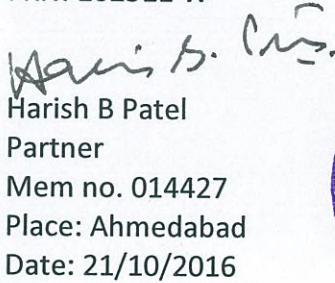 Harish B Patel
Partner
Mem no. 014427
Place: Ahmedabad
Date: 21/10/2016